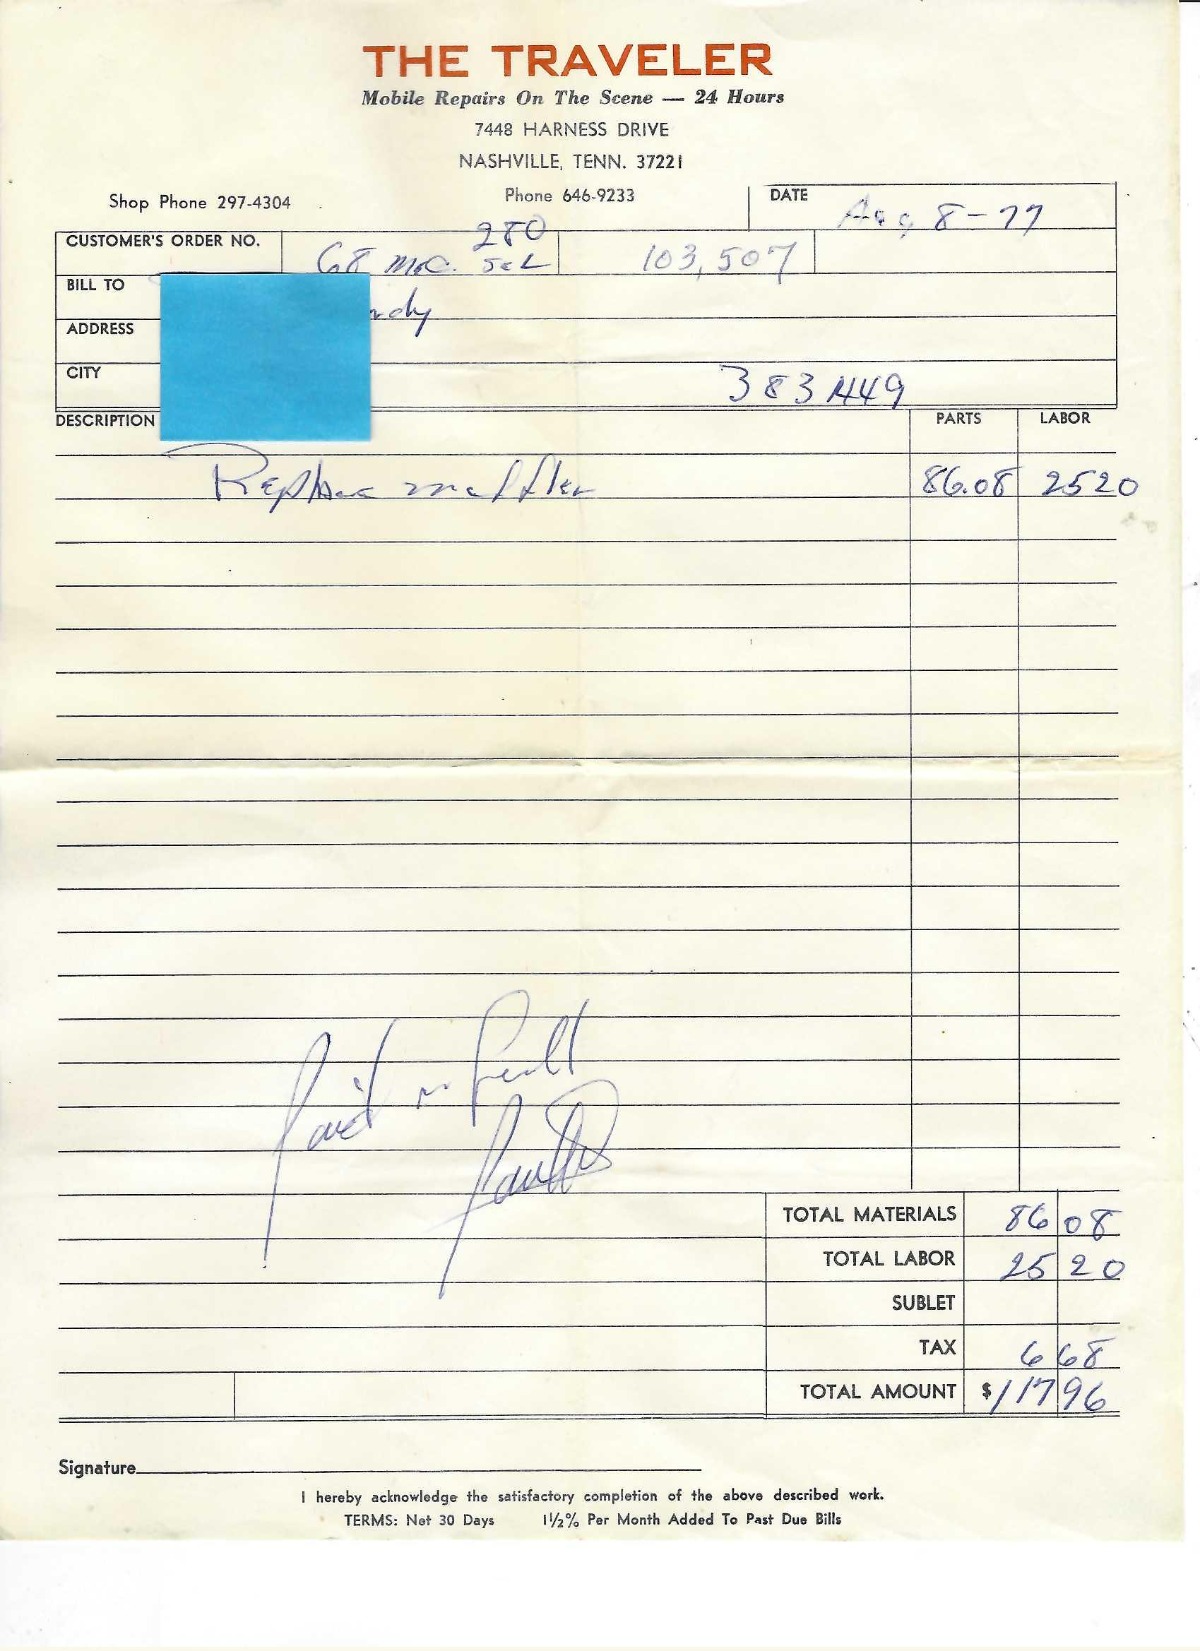 THE TRAVELER
Mobile Repairs On The Scene — 24 Hours
7448 HARNESS DRIVE
NASHVILLE, TENN. 37221
Shop Phone 297-4304 Phone 646-9233 DATE Aug 8-77
CUSTOMER'S ORDER NO. 280
68 103,507
BILL TO
ADDRESS
CITY 383 1449
DESCRIPTION PARTS LABOR
Replace muffler 86.08 2520
Paid in full
TOTAL MATERIALS 86 08
TOTAL LABOR 25 20
SUBLET
TAX 6 68
TOTAL AMOUNT $117 96
Signature
I hereby acknowledge the satisfactory completion of the above described work.
TERMS: Net 30 Days 1½% Per Month Added To Past Due Bills